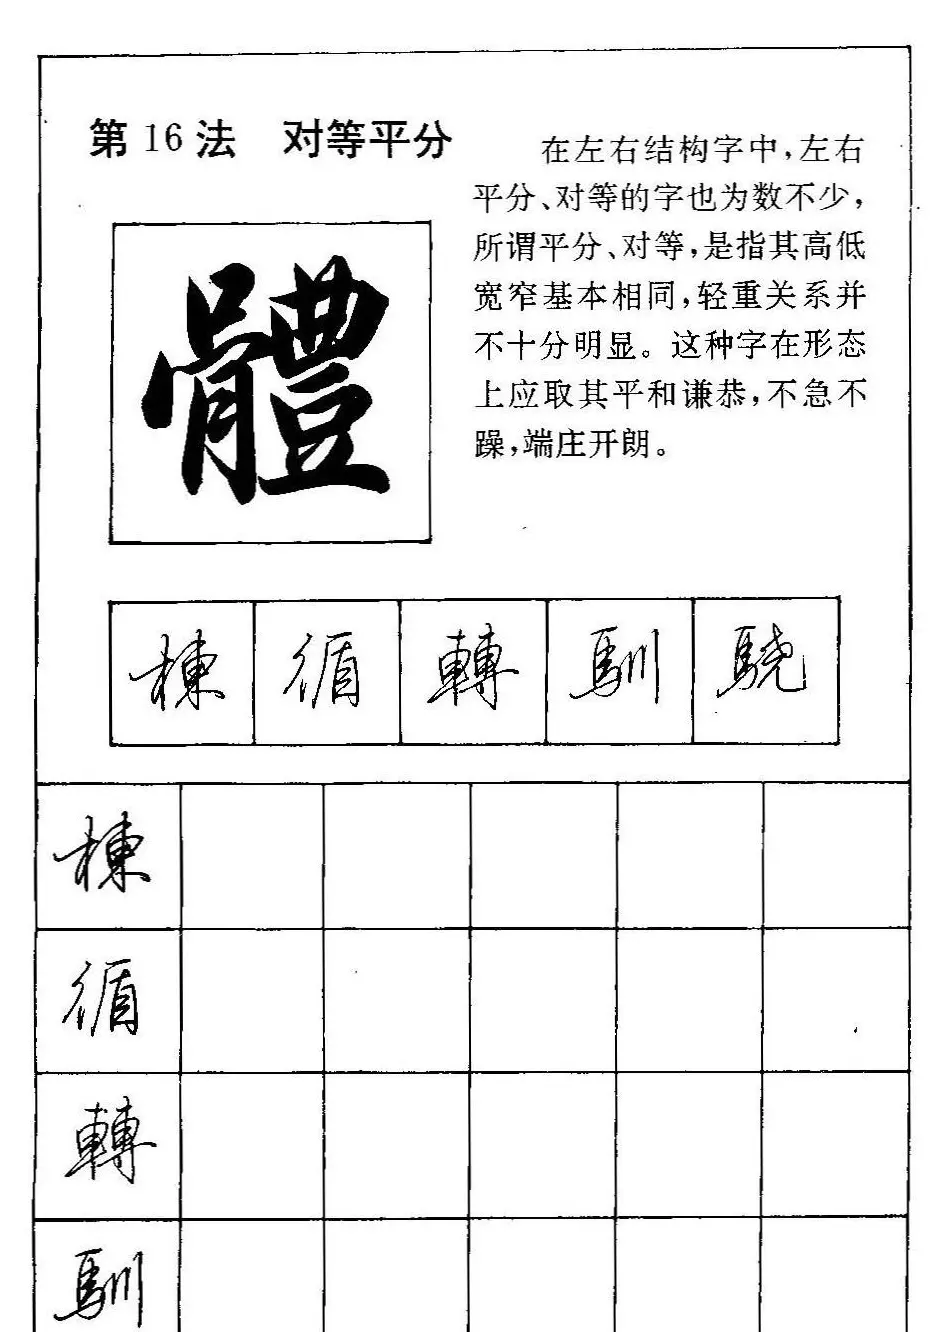 第16法 对等平分
在左右结构字中,左右
平分、对等的字也为数不少,
所谓平分、对等,是指其高低
宽窄基本相同,轻重关系并
不十分明显。这种字在形态
上应取其平和谦恭,不急不
躁,端庄开朗。
體
棟 循 轉 馴 驍
棟
循
轉
馴